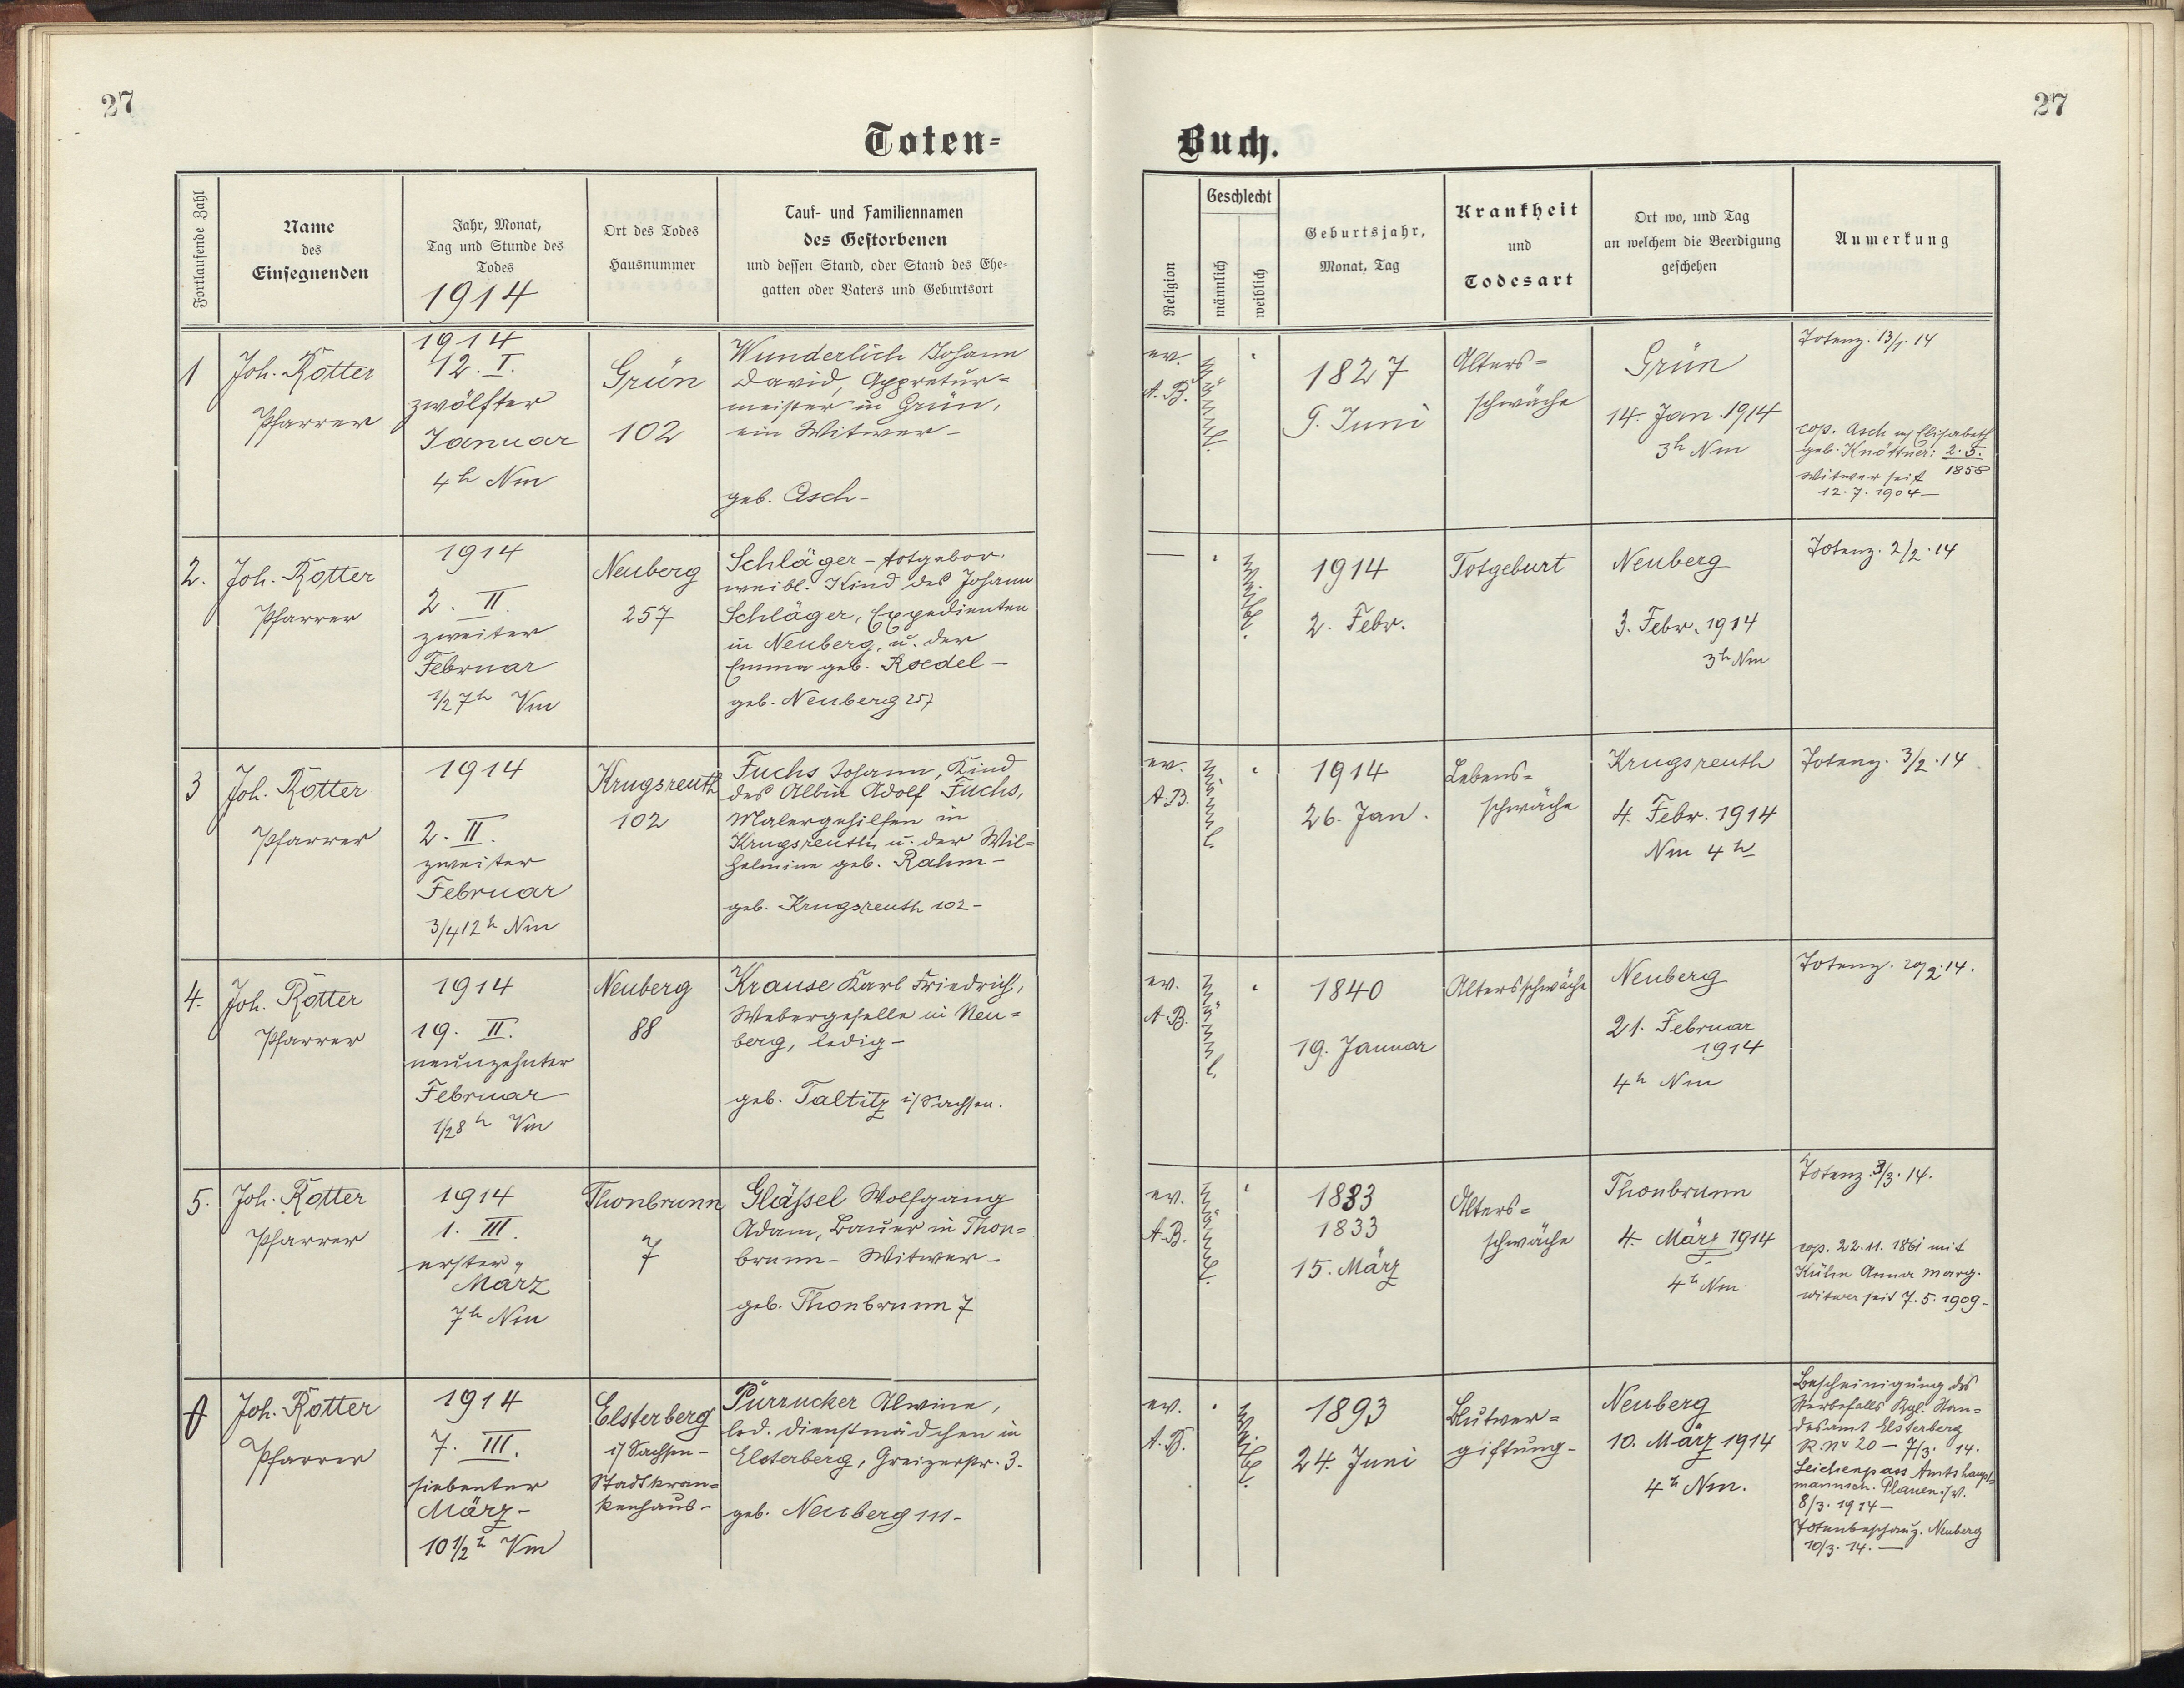 27
27
Toten-
Buch.
Fortlaufende Zahl
Name
des
Einsegnenden
Jahr, Monat,
Tag und Stunde des
Todes
1914
Ort des Todes
Hausnummer
Tauf- und Familiennamen
des Gestorbenen
und dessen Stand, oder Stand des Ehe-
gatten oder Vaters und Geburtsort
Religion
Geschlecht
männlich
weiblich
Geburtsjahr,
Monat, Tag
Krankheit
und
Todesart
Ort wo, und Tag
an welchem die Beerdigung
geschehen
Anmerkung
1
Joh. Rotter
Pfarrer
1914
12. I.
zwölfter
Januar
4h Nm
Grün
102
Wunderlich Johann
David, Appretur-
meister in Grün,
ein Witwer-
geb. Asch-
ev.
A. B.
männl.
1827
9. Juni
Alters-
schwäche
Grün
14. Jan. 1914
3h Nm
Totenz. 13/1. 14
cop. Asch m/ Elisabeth
geb. Knöttner: 2. 5.
1858
Witwer seit
12. 7. 1904-
2.
Joh. Rotter
Pfarrer
1914
2. II.
zweiter
Februar
1/2 7h Vm
Neuberg
257
Schläger - totgebor.
weibl. Kind des Johann
Schläger, Expedienten
in Neuberg, u. der
Emma geb. Roedel-
geb. Neuberg 257
-
weibl.
1914
2. Febr.
Totgeburt
Neuberg
3. Febr. 1914
3h Nm
Totenz. 2/2. 14
3
Joh. Rotter
Pfarrer
1914
2. II.
zweiter
Februar
3/4 12h Nm
Krugsreuth
102
Fuchs Johann, Kind
des Albin Adolf Fuchs,
Malergehilfen in
Krugsreuth, u. der Wil-
helmine geb. Rahm-
geb. Krugsreuth 102-
ev.
A. B.
männl.
1914
26. Jan.
Lebens-
schwäche
Krugsreuth
4. Febr. 1914
Nm 4h
Totenz. 3/2. 14
4.
Joh. Rotter
Pfarrer
1914
19. II.
neunzehnter
Februar
1/2 8h Vm
Neuberg
88
Krause Karl Friedrich,
Webergeselle in Neu-
berg, ledig-
geb. Taltitz i/Sachsen.
ev.
A. B.
männl.
1840
19. Januar
Altersschwäche
Neuberg
21. Februar
1914
4h Nm
Totenz. 20/2. 14.
5.
Joh. Rotter
Pfarrer
1914
1. III.
erster
März
7h Nm
Thonbrunn
7
Gläßel Wolfgang
Adam, Bauer in Thon-
brunn- Witwer-
geb. Thonbrunn 7
ev.
A. B.
männl.
1833
1833
15. März
Alters-
schwäche
Thonbrunn
4. März 1914
4h Nm.
Totenz. 3/3. 14.
cop. 22. 11. 1861 mit
Kühn Anna Marg.
Witwer seit 7. 5. 1909-
Joh. Rotter
Pfarrer
1914
7. III.
siebenter
März-
10 1/2h Vm
Elsterberg
i/ Sachsen-
Stadtkran-
kenhaus-
Purrucker Alwine,
led. Dienstmädchen in
Elsterberg, Greizerstr. 3.
geb. Neuberg 111-
ev.
A. B.
weibl.
1893
24. Juni
Blutver-
giftung-
Neuberg
10. März 1914
4h Nm.
Bescheinigung des
Sterbefalls Kgl. Stan-
desamt Elsterberg
R. Nr 20 - 7/3. 14.
Leichenpass Amtshaupt-
mannsch. Plauen i/V.
8/3. 1914-
Totenbeschauz. Neuberg
10/3. 14.-